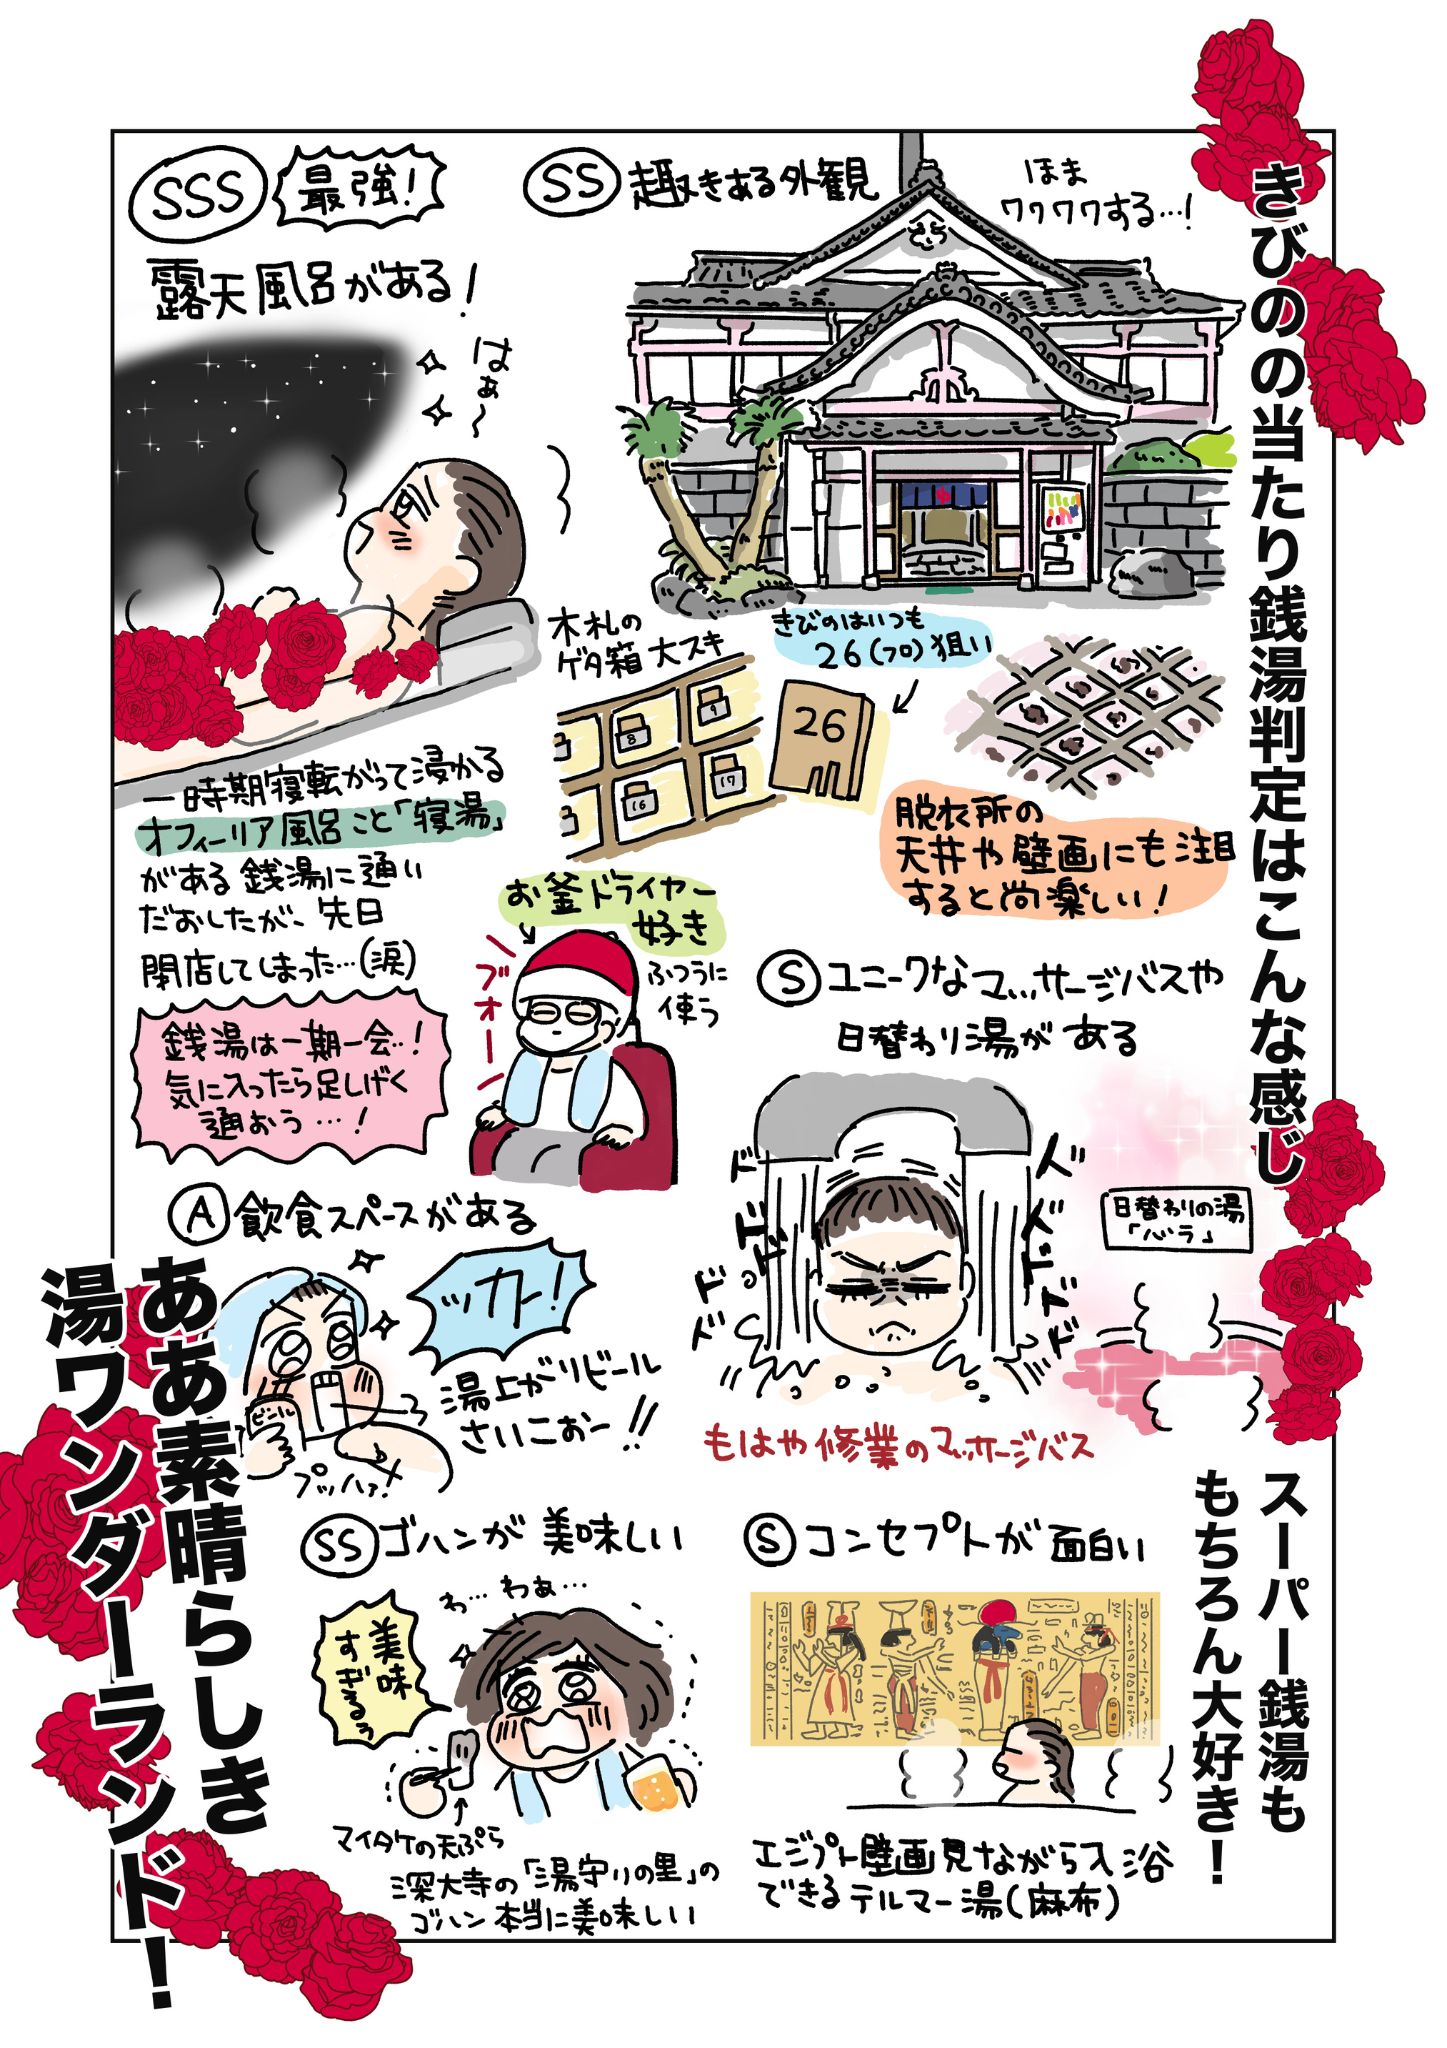 きびのの当たり銭湯判定はこんな感じ
SS 趣きある外観
ほま
ワクワクする…!
木札の
ゲタ箱 大スキ
8
9
16
17
きびのはいつも
26(フロ)狙い
26
脱衣所の
天井や壁画にも注目
すると尚楽しい!
お釜ドライヤー
好き
ふつうに
使う
ブオーー
SSS 最強!
露天風呂がある!
はぁ〜
一時期寝転がって浸かる
オフィーリア風呂こと「寝湯」
がある銭湯に通い
だおしたが、先日
閉店してしまった…(涙)
銭湯は一期一会…!
気に入ったら足しげく
通おう…!
S ユニークなマッサージバスや
日替わり湯がある
ドドドドド
ドドドドド
日替わりの湯
「バラ」
もはや修業のマッサージバス
A 飲食スペースがある
ッカー!
ビール
湯上がりビール
さいこおー!!
プッハァ!
スーパー銭湯も
もちろん大好き!
S コンセプトが面白い
エジプト壁画見ながら入浴
できるテルマー湯(麻布)
SS ゴハンが美味しい
わ…わぁ…
美味
すぎるぅ
マイタケの天ぷら
深大寺の「湯守りの里」の
ゴハン本当に美味しい
ああ素晴らしき
湯ワンダーランド!